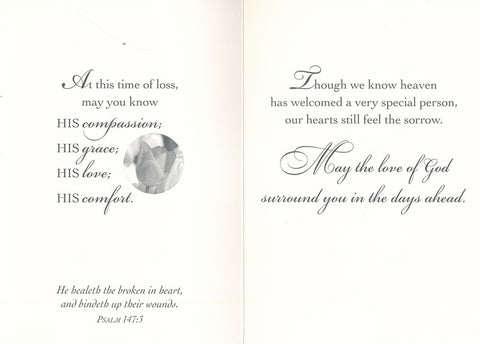 At this time of loss,
may you know
HIS compassion;
HIS grace;
HIS love;
HIS comfort.
He healeth the broken in heart,
and bindeth up their wounds.
PSALM 147:3
Though we know heaven
has welcomed a very special person,
our hearts still feel the sorrow.
May the love of God
surround you in the days ahead.